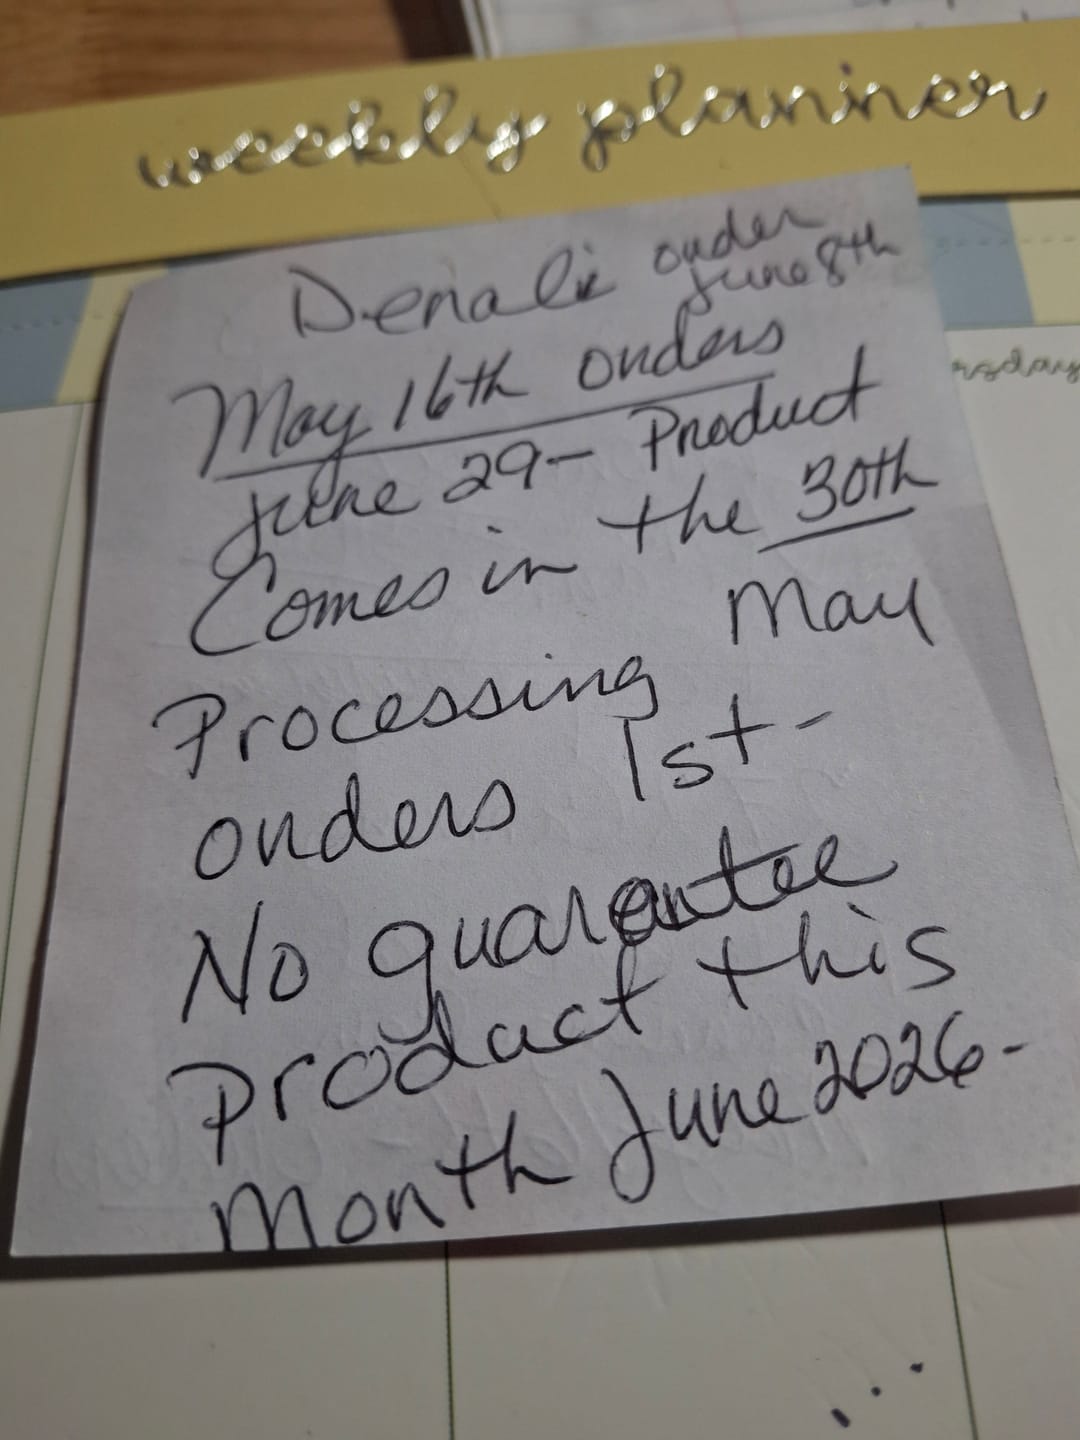 weekly planner
Denali order
June 8th
May 16th orders
rsday
June 29- Product
Comes in the 30th
Processing May
orders 1st-
No guarantee
Product this
Month June 2026-